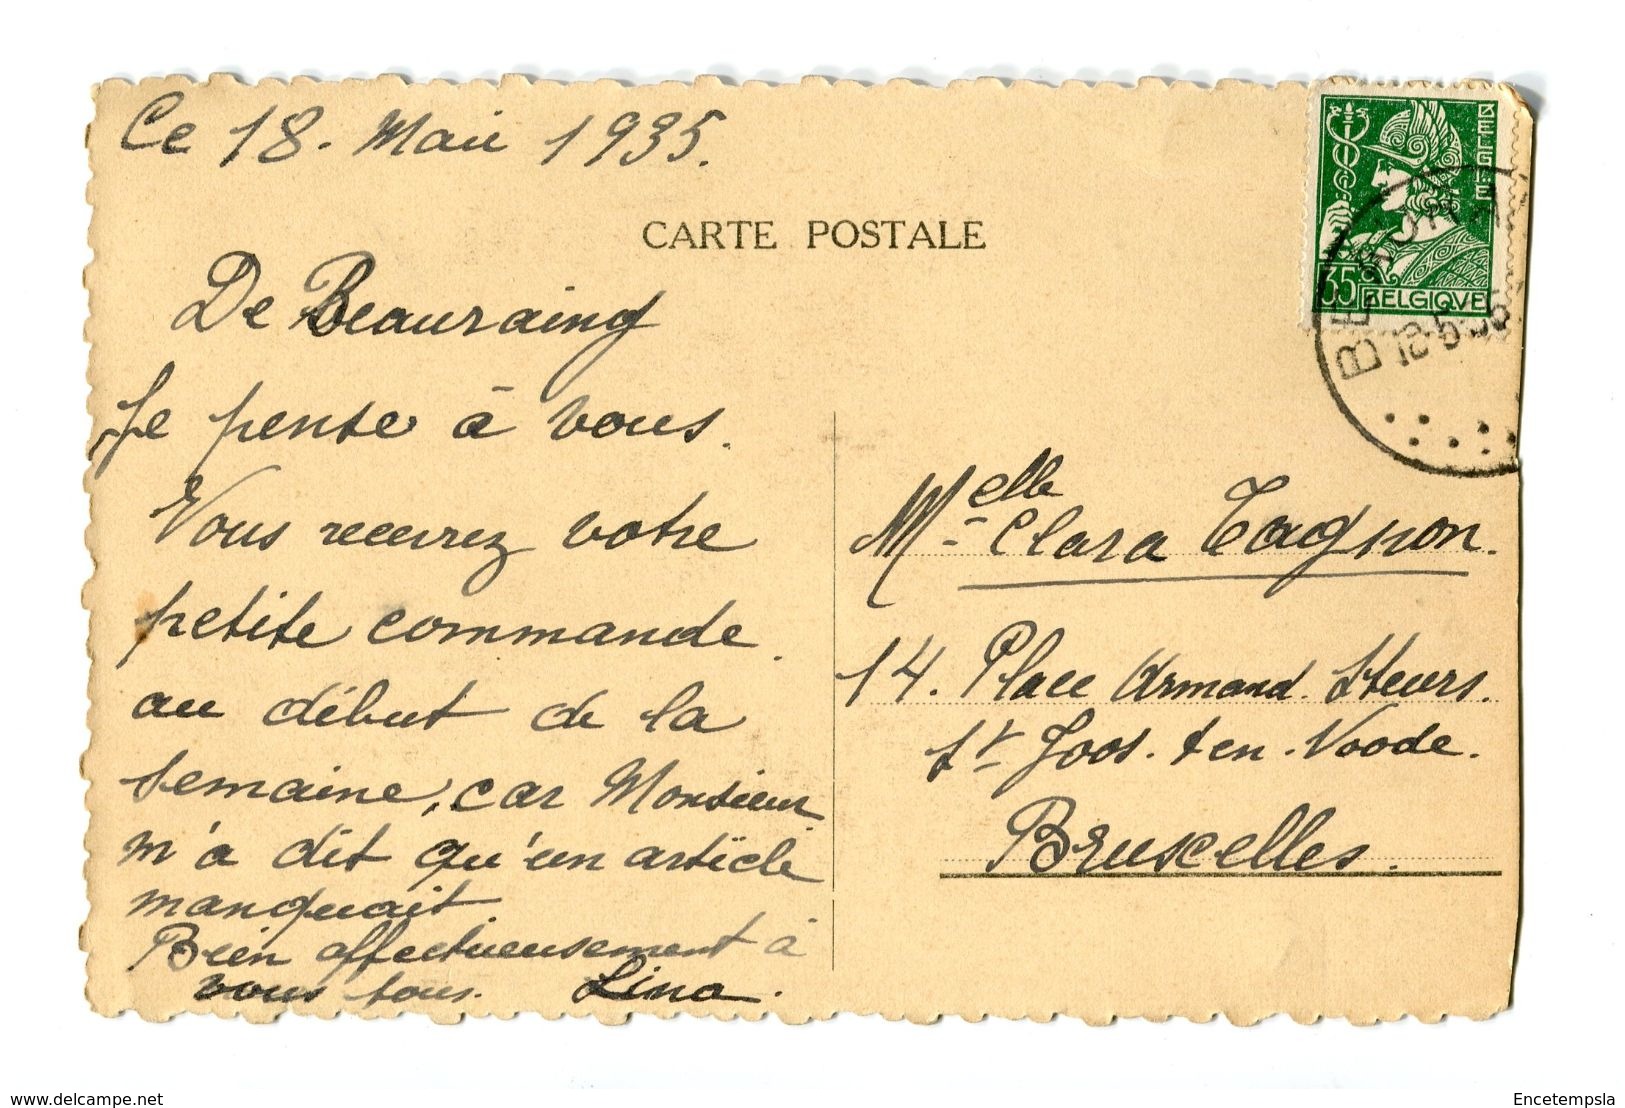 Ce 18. Mai 1935.
CARTE POSTALE
De Beauraing
Je pense à vous.
Vous recevrez votre
petite commande
au début de la
semaine, car Monsieur
m'a dit qu'un article
manquait.
Bien affectueusement à
vous tous. Lina.
BELGIE
35 BELGIQUE
18-5-35
Melle Clara Tagnon.
14. Place Armand Steurs.
St Joos-ten-Noode.
Bruxelles.
www.delcampe.net
Encetempsla